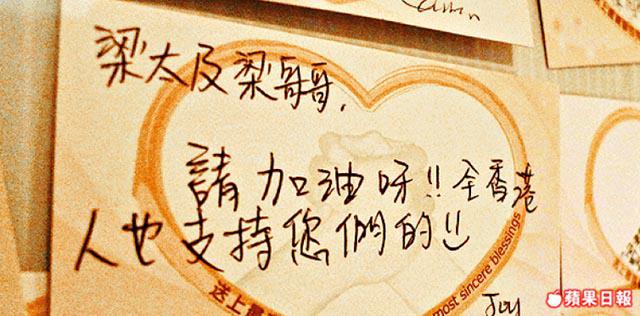 梁太及梁哥哥,
請加油呀!! 全香港
人也支持您們的!!
送上
most sincere blessings
Joy
蘋果日報